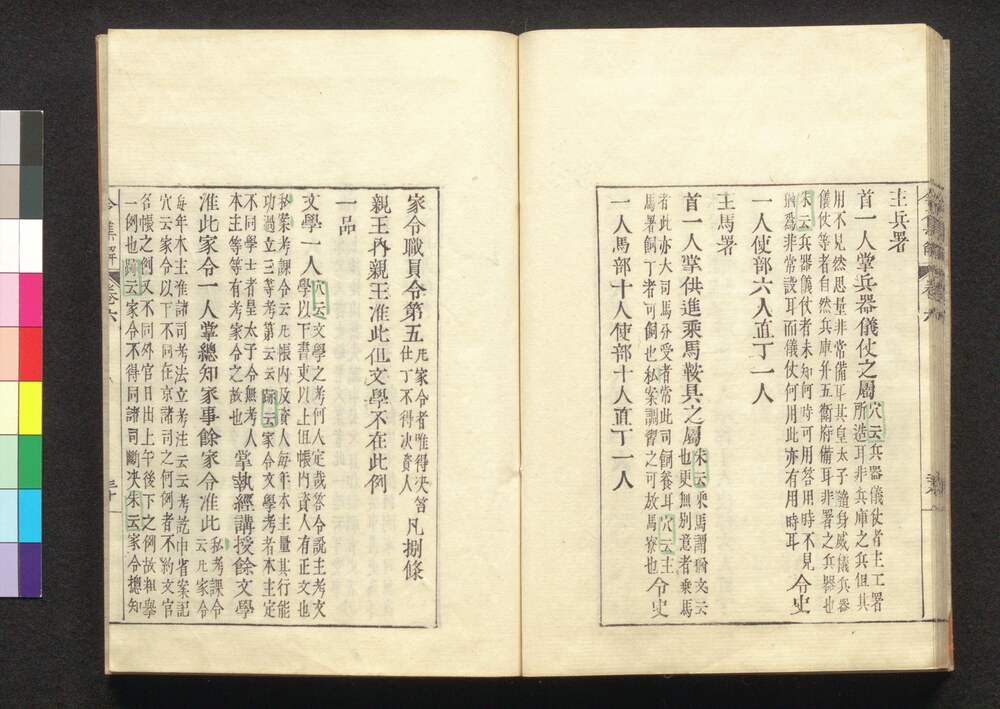 主兵署
首一人掌兵器儀仗之屬穴云兵器儀仗者主工署
所造耳非兵庫之兵但其
用不見然思量非常備耳其皇太子隨身威儀兵器
儀仗等者自然兵庫并五衛府備耳非署之兵器也
朱云兵器儀仗者未知何時可用答用時不見
猶爲非常設耳而儀仗何用此亦有用時耳
令史
一人使部六人直丁一人
主馬署
首一人掌供進乘馬鞍具之屬朱云乘馬謂猶文云
也更無別意者乘馬
者此亦大司馬分受者常此司飼養耳穴云主
馬署飼丁者可飼也私案調習之可故馬寮也
令史
一人馬部十人使部十人直丁一人
令集解 卷六
家令職員令第五凡家令者唯得決笞
仕丁不得決資人
凡捌條
親王內親王准此但文學不在此例
一品
文學一人穴云文學之考何人定哉答令說主考文
學以下書吏以上但帳內資人有正文也
私案考課令云凡帳內及資人每年本主量其行能
功過立三等考第云云跡云家令文學考者本主定
不同學士者皇太子令無考人
本主等等有考家令之故也
掌執經講授餘文學
准此家令一人掌總知家事餘家令准此私考課令
云凡家令
每年本主准諸司考法立考注云云考訖申省案記
穴云家令以下不同在京諸司之何例者不約文官
名帳之例又不同外官日出上午後下之例故粗舉
一例也跡云家令不得同諸司斷決朱云家令摠知
令集解 卷六